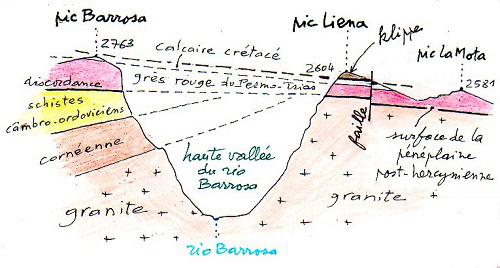 pic Barrosa
2763
calcaire crétacé
pic Liena
2604
klippe
pic La Mota
2581
discordance
grès rouge du Permo-Trias
schistes
cambro-ordoviciens
cornéenne
faille
haute vallée
du rio
Barrosa
surface de la
pénéplaine
post-hercynienne
granite
granite
rio Barrosa